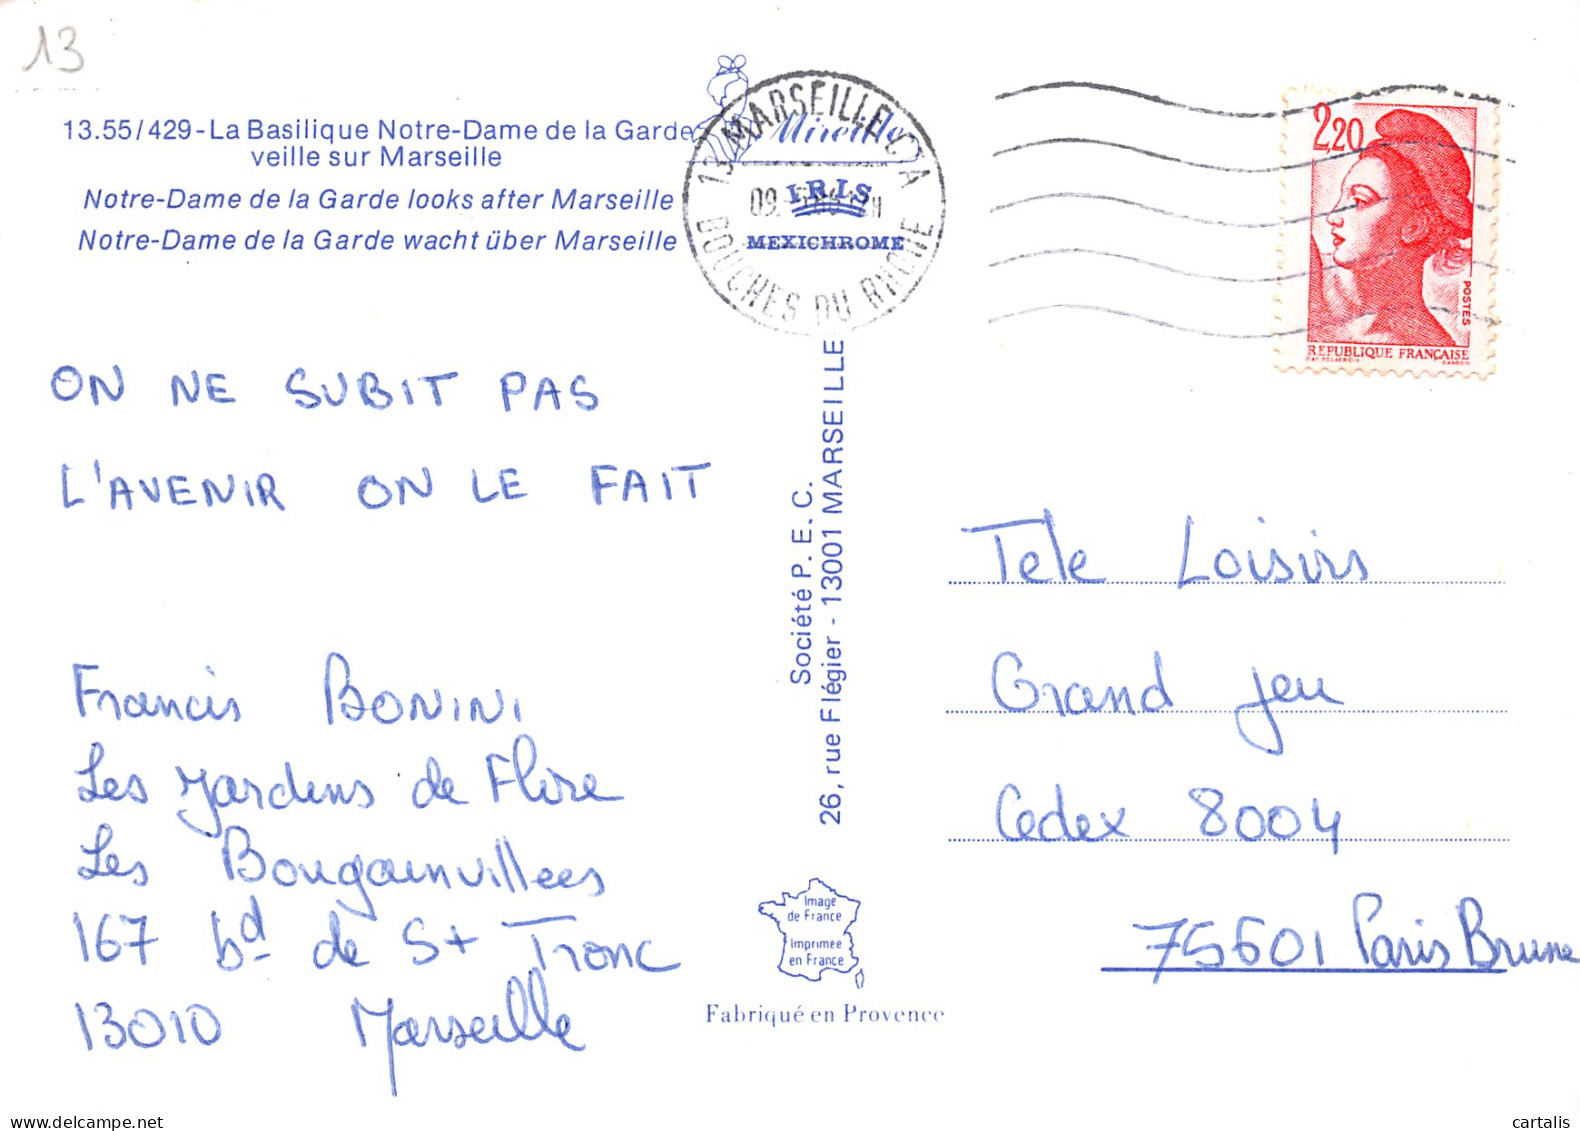 13
13.55/429-La Basilique Notre-Dame de la Garde
veille sur Marseille
Notre-Dame de la Garde looks after Marseille
Notre-Dame de la Garde wacht über Marseille
Mireille
IRIS
MEXICHROME
13 MARSEILLE
BOUCHES DU RHONE
09
2,20
POSTES
REPUBLIQUE FRANÇAISE
ON NE SUBIT PAS
L'AVENIR ON LE FAIT
Francis BONINI
Les Jardins de Flore
Les Bougainvillees
167 bd de St Tronc
13010 Marseille
Société P. E. C.
26, rue Flégier - 13001 MARSEILLE
Image
de France
Imprimée
en France
Fabriqué en Provence
Tele Loisirs
Grand Jeu
Cedex 8004
75601 Paris Brune
cartalis